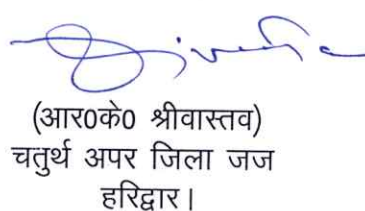 (आर0के0 श्रीवास्तव)
चतुर्थ अपर जिला जज
हरिद्वार।